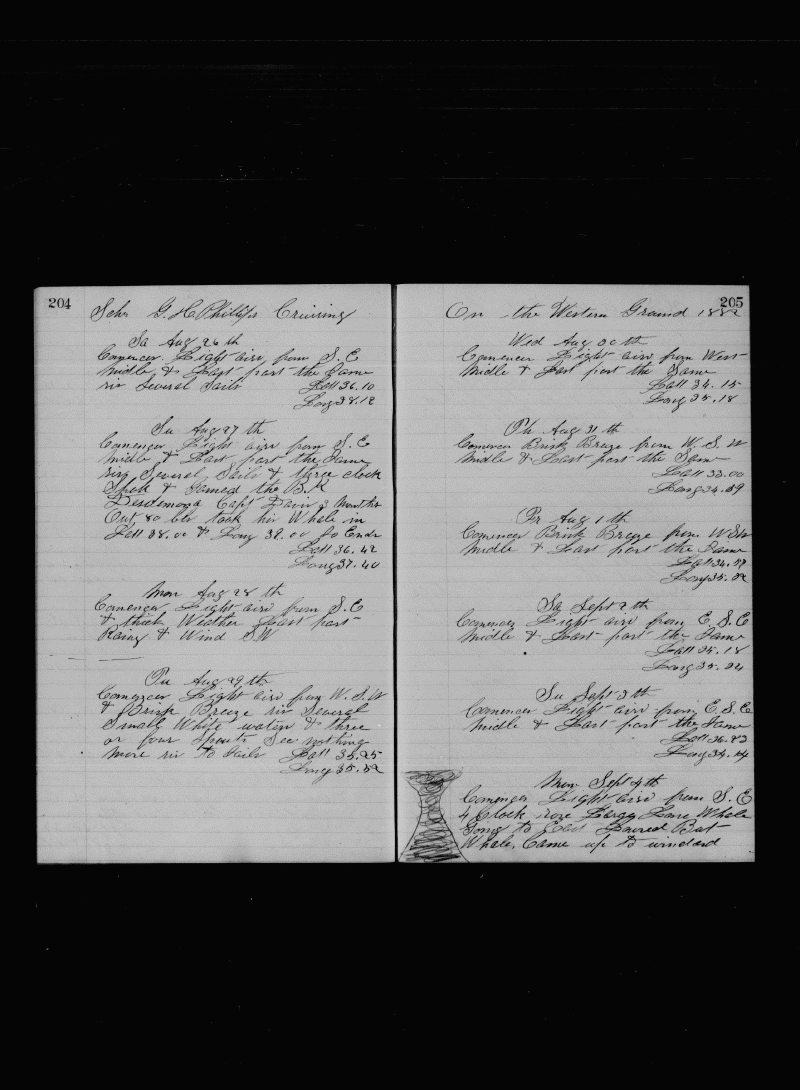 204
Schr G. H Phillips Cruising
Sa Aug 26 th
Comences Light airs from S. E
Midle & Last part the Same
sis Several Sails Latt 36.10
Long 38.12
Su Aug 27 th
Comences Light airs from S. E
Midle & Last part the Same
sis Several Sails & three clock
Spok & Gamed the B.K
Desdemona Capt Davis 3 Months
Out, 80 bbs took his Whale in
Latt 38.00 & Long 32.00 So Ends
Latt 36.42
Long 37.40
Mon Aug 28 th
Comences Light airs from S. E
& thick Weather Last part
Rainy & Wind SW
Tu Aug 29 th
Comences Light airs from W. S. W
& Brisk Breeze sis Several
Smoly White water & three
or four Spouts See nothing
more sis to Sails Latt 35.25
Long 35.52
205
On the Western Ground 1882
Wed Aug 30 th
Comences Light airs from West
Midle & Last part the Same
Latt 34.15
Long 35.18
Th Aug 31 th
Comences Brisk Breeze from W. S. W
Midle & Last part the Same
Latt 33.00
Long 34.09
Fr Aug 1 th
Comences Brisk Breeze from W S W
Midle & Last part the Same
Latt 34.57
Long 35.02
Sa Sept 2 th
Comences Light airs from E. S. E
Midle & Last part the Same
Latt 35.18
Long 35.24
Su Sept 3 th
Comences Light airs from E. S. E
Midle & Last part the Same
Latt 36.23
Long 34.14
Mon Sept 4 th
Comences Light airs from S. E
4 Clock Larg Lone Whale
Going to East Loured But
Whale, Came up to windard